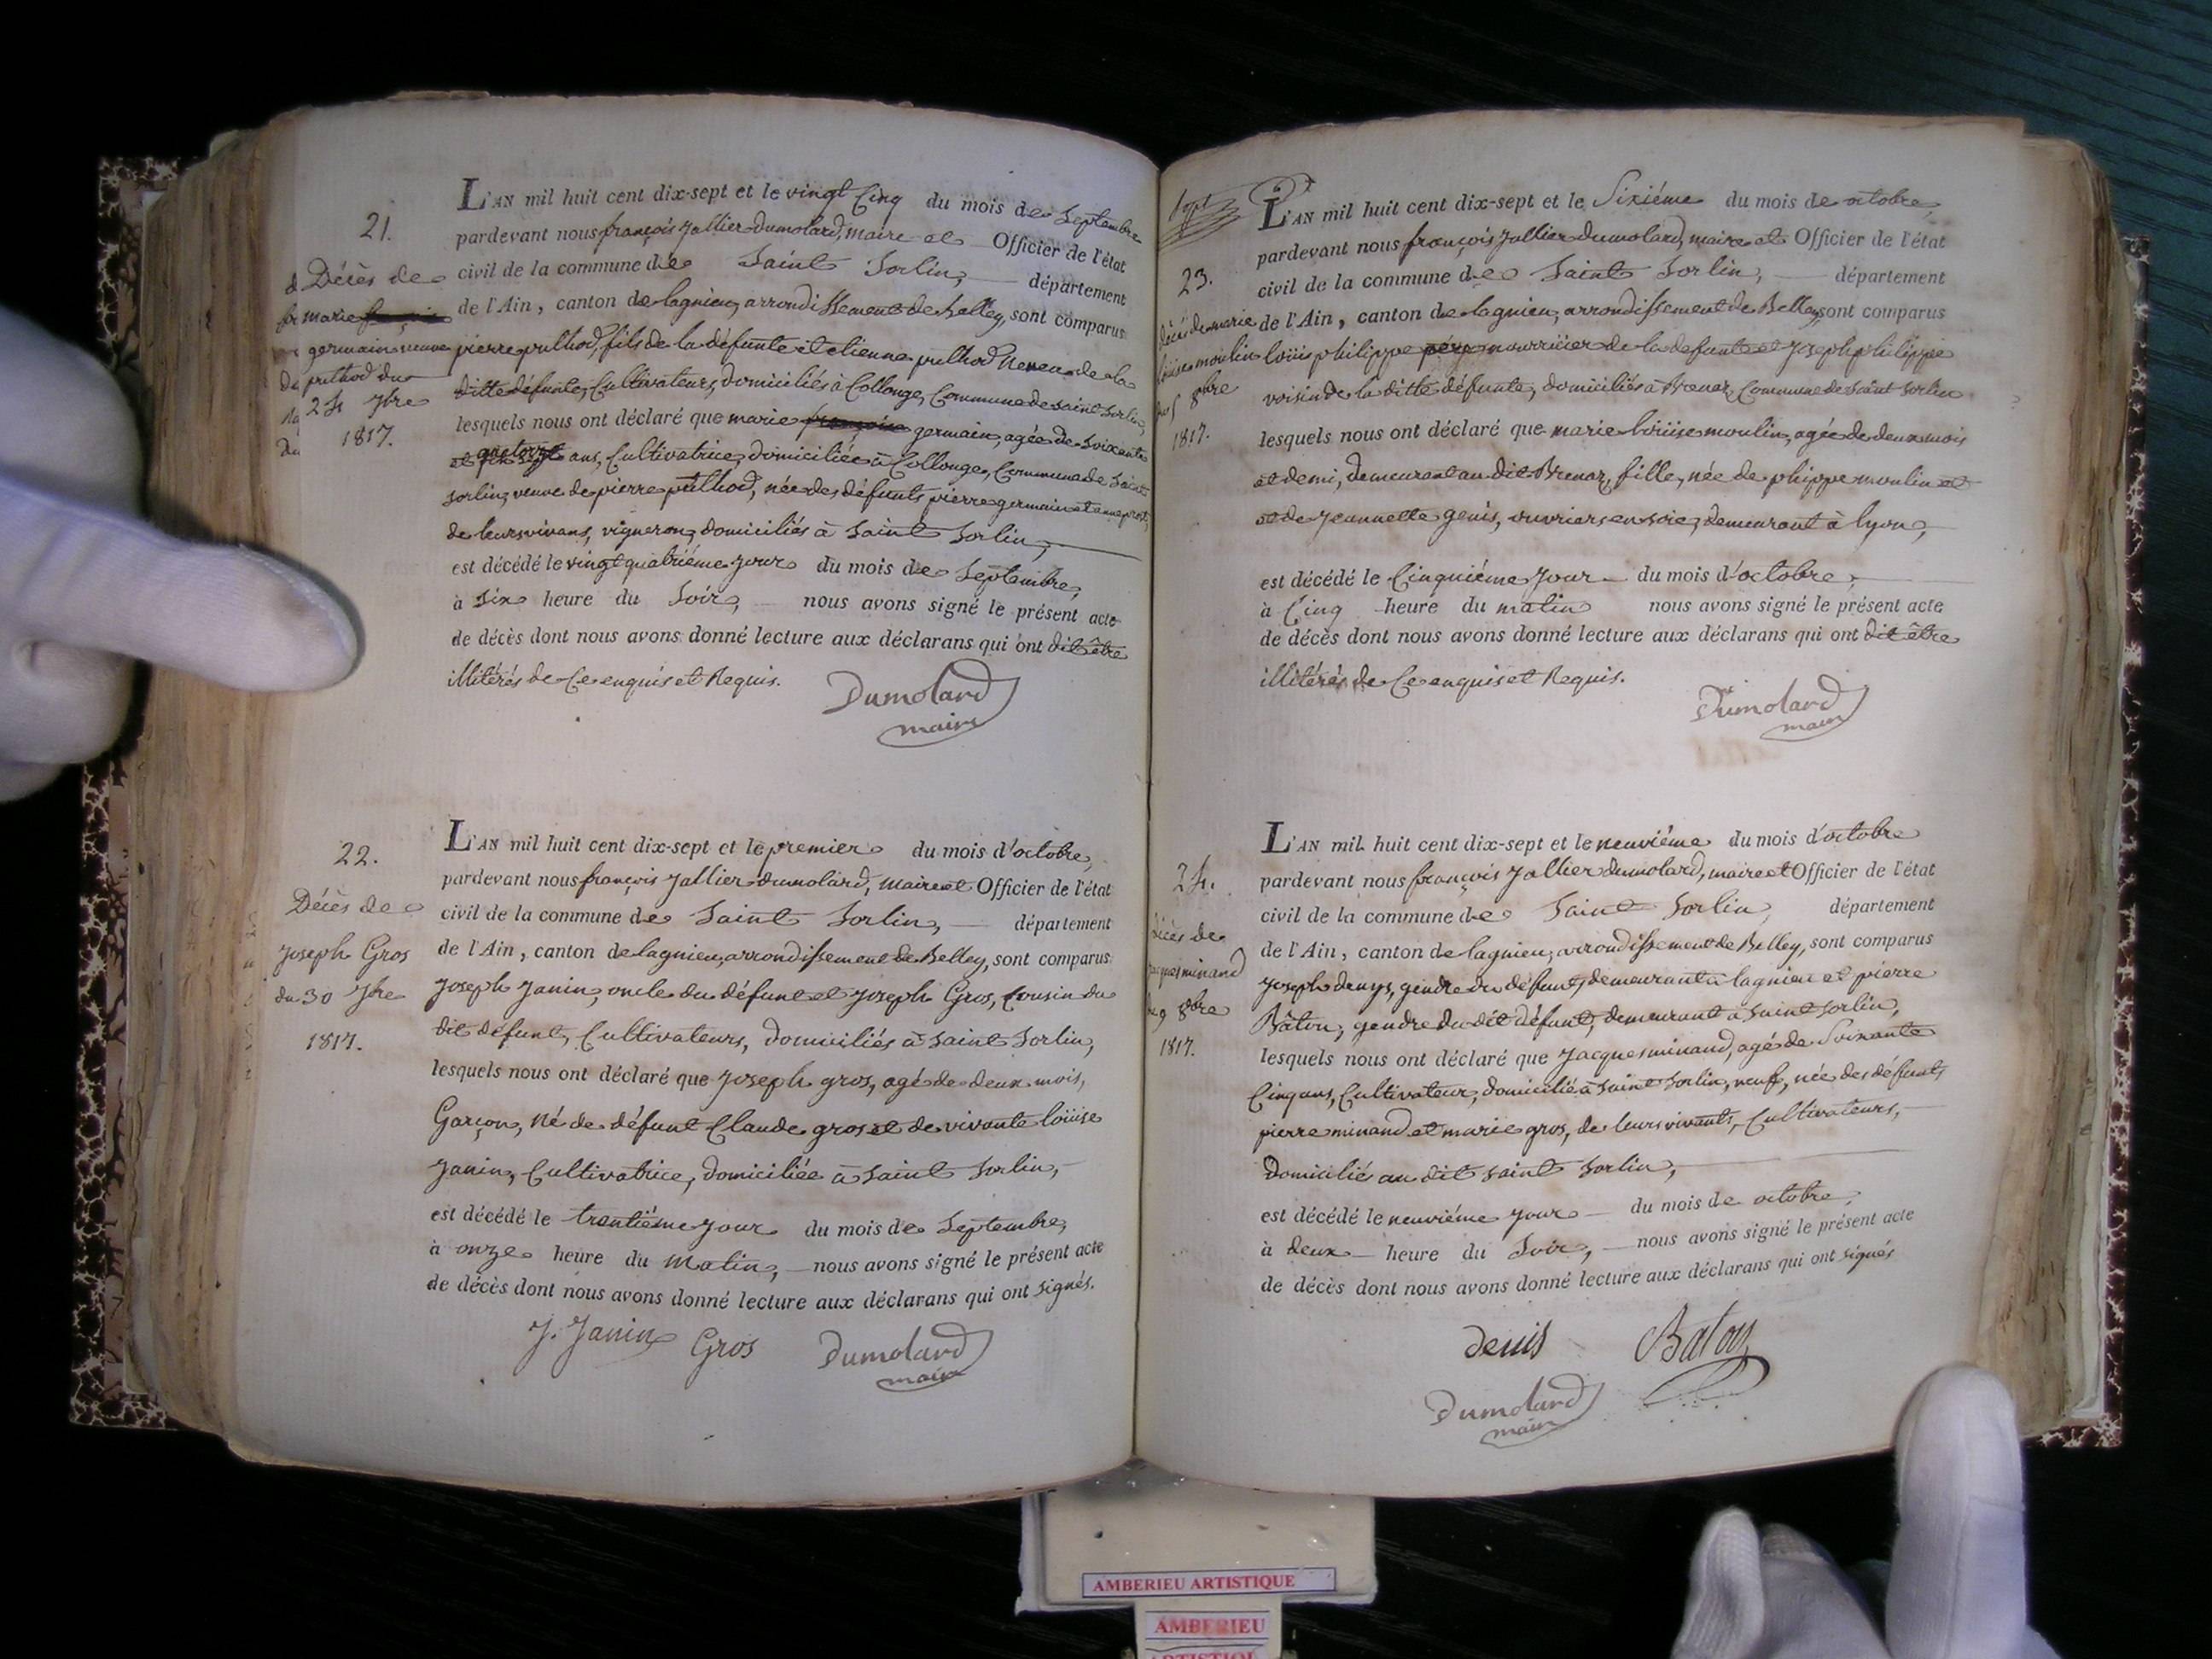 21.
Décès de
marie
germain veuve
puthod du
24 7bre
1817.
L'AN mil huit cent dix-sept et le vingt Cinq du mois de Septembre
pardevant nous françois Jallier dumolard, maire et Officier de l'état
civil de la commune de Saint Sorlin, département
de l'Ain, canton de lagnieu, arrondissement de Belley, sont comparus
pierre puthod, fils de la défunte et etienne puthod Neveu de la
ditte défunte, Cultivateurs, domiciliés à Collonge, Commune de Saint Sorlin,
lesquels nous ont déclaré que marie germain, agée de Soixante
et quatorze ans, Cultivatrice, domiciliée à Collonge, Commune de Saint
Sorlin, veuve de pierre puthod, née des défunts pierre germain et anne
de leurs vivans, vignerons, domiciliés à Saint Sorlin,
est décédé le vingt quatriéme jour du mois de Septembre,
à Six heure du Soir, nous avons signé le présent acte
de décès dont nous avons donné lecture aux déclarans qui ont dit être
illitérés de Ce enquis et Requis.
Dumolard
maire
22.
Décès de
Joseph Gros
du 30 7bre
1817.
L'AN mil huit cent dix-sept et le premier du mois d'octobre,
pardevant nous françois Jallier dumolard, maire et Officier de l'état
civil de la commune de Saint Sorlin, département
de l'Ain, canton de lagnieu, arrondissement de Belley, sont comparus
Joseph Janin, oncle du défunt et Joseph Gros, Cousin du
dit défunt, Cultivateurs, domiciliés à Saint Sorlin,
lesquels nous ont déclaré que Joseph gros, agé de deux mois,
Garçon, Né de défunt Claude gros et de vivante loüise
Janin, Cultivatrice, domiciliée à Saint Sorlin,
est décédé le trentiéme jour du mois de Septembre,
à onze heure du Matin, nous avons signé le présent acte
de décès dont nous avons donné lecture aux déclarans qui ont signés.
J. Janin Gros Dumolard
maire
23.
décé de marie
loüise moulin
du 5 8bre
1817.
L'AN mil huit cent dix-sept et le Sixiéme du mois de octobre,
pardevant nous françois Jallier dumolard, maire et Officier de l'état
civil de la commune de Saint Sorlin, département
de l'Ain, canton de lagnieu, arrondissement de Belley, sont comparus
loüis philippe père nourricier de la défunte et Joseph philippe
voisin de la ditte défunte, domiciliés à Brenaz, Commune de Saint Sorlin
lesquels nous ont déclaré que marie loüise moulin, agée de deux mois
et demi, demeurant au dit Brenaz, fille, née de phippe moulin et
et de Jeannette genis, ouvriers en soie, demeurant à lyon,
est décédé le Cinquiéme jour du mois d'octobre,
à Cinq heure du matin nous avons signé le présent acte
de décès dont nous avons donné lecture aux déclarans qui ont dit être
illitérés de Ce enquis et Requis.
Dumolard
maire
24.
décès de
jacques minand
du 9 8bre
1817.
L'AN mil huit cent dix-sept et le neuviéme du mois d'octobre
pardevant nous françois Jallier dumolard, maire et Officier de l'état
civil de la commune de Saint Sorlin, département
de l'Ain, canton de lagnieu, arrondissement de Belley, sont comparus
Joseph denys, gendre du défunt, demeurant à lagnieu et pierre
Bâton, gendre du dit défunt, demeurant à Saint Sorlin,
lesquels nous ont déclaré que Jacques minand, agé de Soixante
Cinq ans, Cultivateur, domicilié à Saint Sorlin, veuf, née des défunts
pierre minand et marie gros, de leurs vivants, Cultivateurs,
domicilié au dit Saint Sorlin,
est décédé le neuviéme jour du mois de octobre,
à deux heure du Soir, nous avons signé le présent acte
de décès dont nous avons donné lecture aux déclarans qui ont signés
denis Baton
Dumolard
maire
AMBERIEU ARTISTIQUE
AMBERIEU
ARTISTIQUE